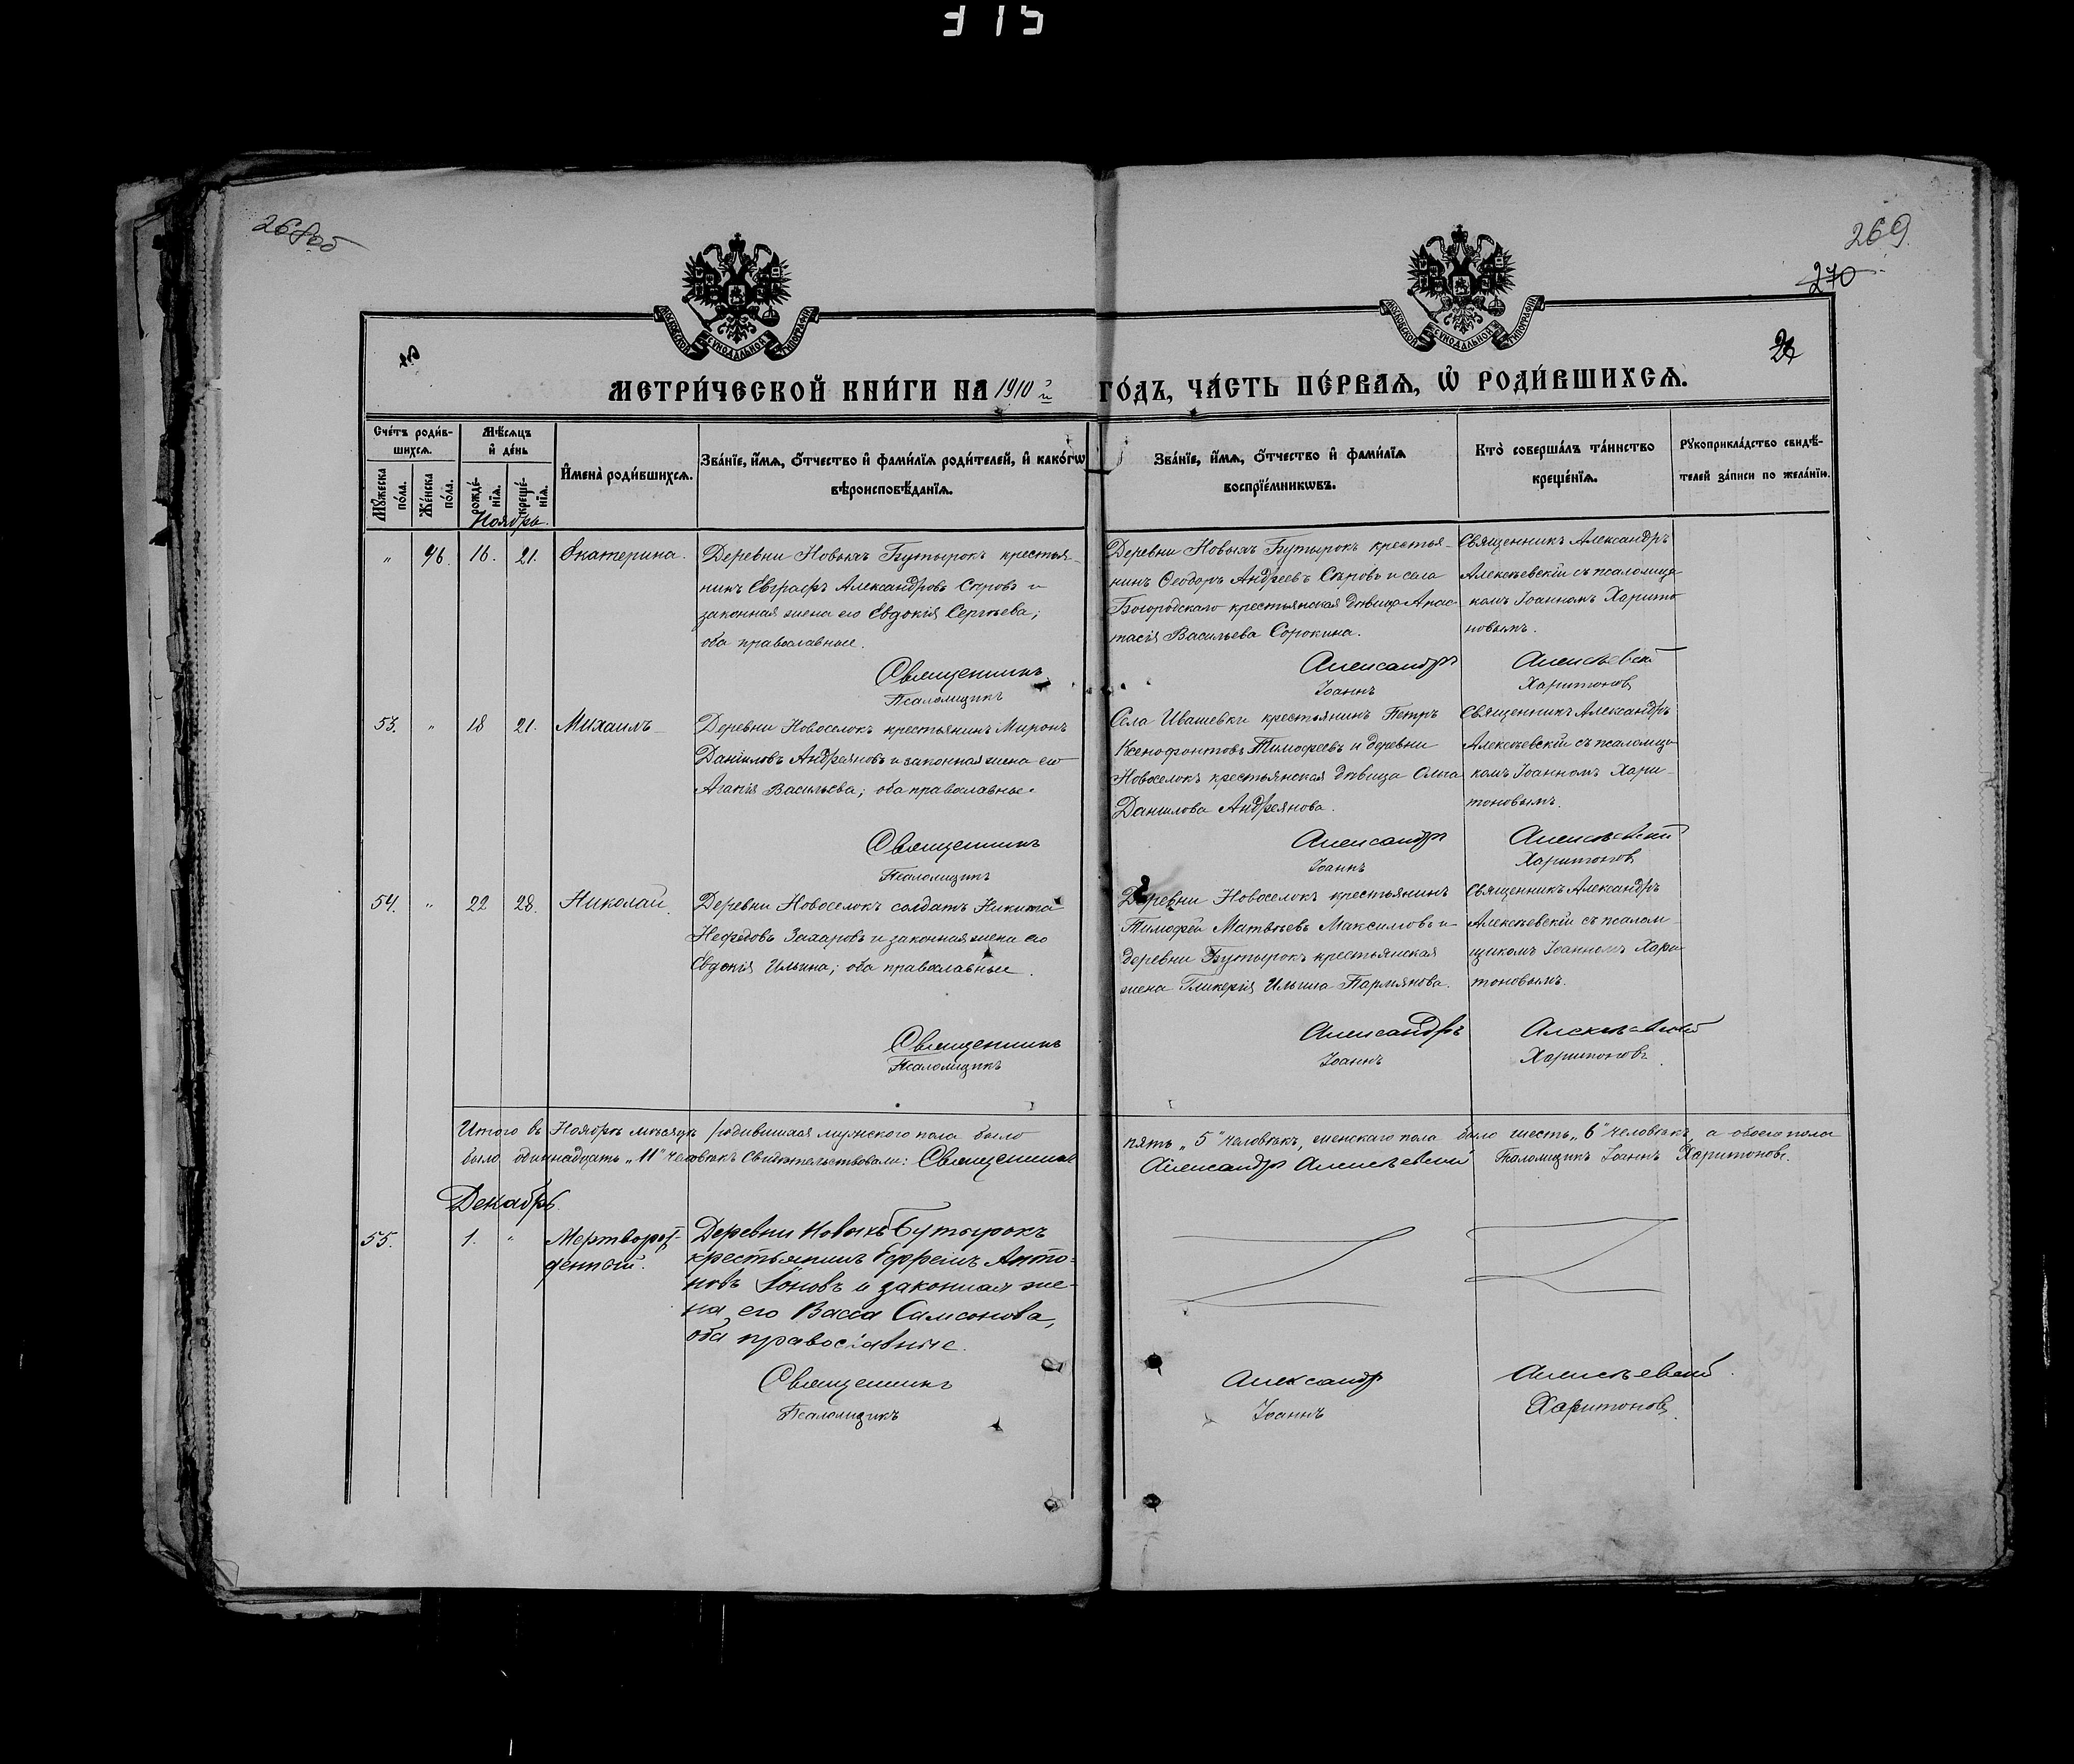 315
268об
269.
270
МОСКОВСКОЙ СѴНОДАЛЬНОЙ ТИПОГРАФІИ
МОСКОВСКОЙ СѴНОДАЛЬНОЙ ТИПОГРАФІИ
МЕТРИ́ЧЕСКОЙ КНИ́ГИ НА 1910 й ГО́ДЪ, ЧА́СТЬ ПЕ́РВАѦ, Ѡ҆ РОДИ́ВШИХСѦ.
Сче́тъ роди́в-
шихсѧ.
Мꙋжеска по́ла.
Же́нска по́ла.
Мѣ́сѧцъ
и҆ де́нь
рожде́-
нїѧ.
креще́-
нїѧ.
И҆мена̀ роди́вшихсѧ.
Зва́нїе, и҆́мѧ, ѻ҆́тчество и҆ фами́лїѧ роди́телей, и҆ како́гѡ
вѣроисповѣ́данїѧ.
Зва́нїе, и҆́мѧ, ѻ҆́тчество и҆ фами́лїѧ
воспрїе́мникѡвъ.
Кто̀ соверша́лъ та́инство
креще́нїѧ.
Рꙋкоприкла́дство свидѣ́-
телей за́писи по жела́нїю.
Ноябрь.
" 46. 16. 21. Екатерина.
Деревни Новыхъ Бутырокъ крестья-
нинъ Евграфъ Александровъ Сѣровъ и
законная жена его Евдокія Сергѣева;
оба православные.
Деревни Новыхъ Бутырокъ крестья-
нинъ Ѳеодоръ Андреевъ Сѣровъ и села
Богородскаго крестьянская дѣвица Анас-
тасія Васильева Сорокина.
Священникъ Александръ
Алексѣевскій съ псаломщи-
комъ Іоанномъ Харито-
новымъ.
Священникъ Александръ Алексѣевскій
Псаломщикъ Іоаннъ Харитоновъ
53. " 18 21. Михаилъ
Деревни Новоселокъ крестьянинъ Миронъ
Даниловъ Андреяновъ и законная жена его
Агапія Васильева; оба православные.
Села Ивашевки крестьянинъ Петръ
Ксенофонтовъ Тимофеевъ и деревни
Новоселокъ крестьянская дѣвица Ольга
Данилова Андреянова.
Священникъ Александръ
Алексѣевскій съ псаломщи-
комъ Іоанномъ Хари-
тоновымъ.
Священникъ Александръ Алексѣевскій
Псаломщикъ Іоаннъ Харитоновъ
54. " 22 28. Николай.
Деревни Новоселокъ солдатъ Никита
Нефедовъ Захаровъ и законная жена его
Евдокія Ильина; оба православные.
Деревни Новоселокъ крестьянинъ
Тимофей Матвѣевъ Максимовъ и
деревни Бутырокъ крестьянская
жена Гликерія Ильина Пармянова.
Священникъ Александръ
Алексѣевскій съ псалом-
щикомъ Іоанномъ Хари-
тоновымъ.
Священникъ Александръ Алексѣевскій
Псаломщикъ Іоаннъ Харитоновъ.
Итого въ Ноябрѣ мѣсяцѣ родившихся мужского пола было пять „5" человѣкъ, женскаго пола было шесть „6" человѣкъ, а обоего пола
было одиннадцать „11" человѣкъ Свидѣтельствовали: Священникъ Александръ Алексѣевскій Псаломщикъ Іоаннъ Харитоновъ.
Декабрь.
55. 1. " Мертворож-
денный.
Деревни Новыхъ Бутырокъ
крестьянинъ Ефремъ Анто-
новъ Іоновъ и законная же-
на его Васса Самсонова,
оба православные.
Священникъ Александръ Алексѣевскій.
Псаломщикъ Іоаннъ Харитоновъ.